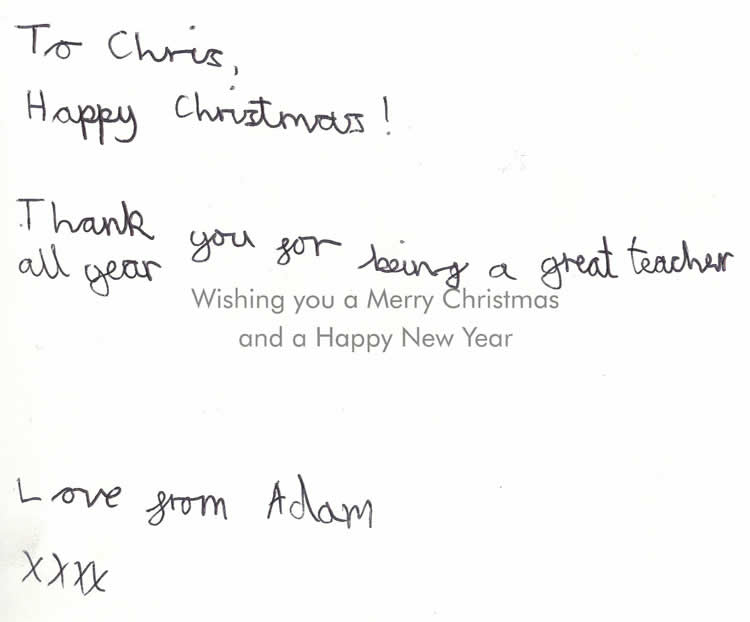 To Chris,
Happy Christmas!
Thank you for being a great teacher
all year
Wishing you a Merry Christmas
and a Happy New Year
Love from Adam
xxxx